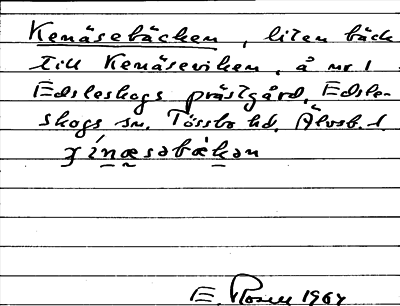 Kenäsebäcken, liten bäck
till Kenäseviken, å nr 1
Edsleskogs prästgård, Edsle-
skogs sn. Tössbo hd, Älvsb. l.
E. Rosell 1964